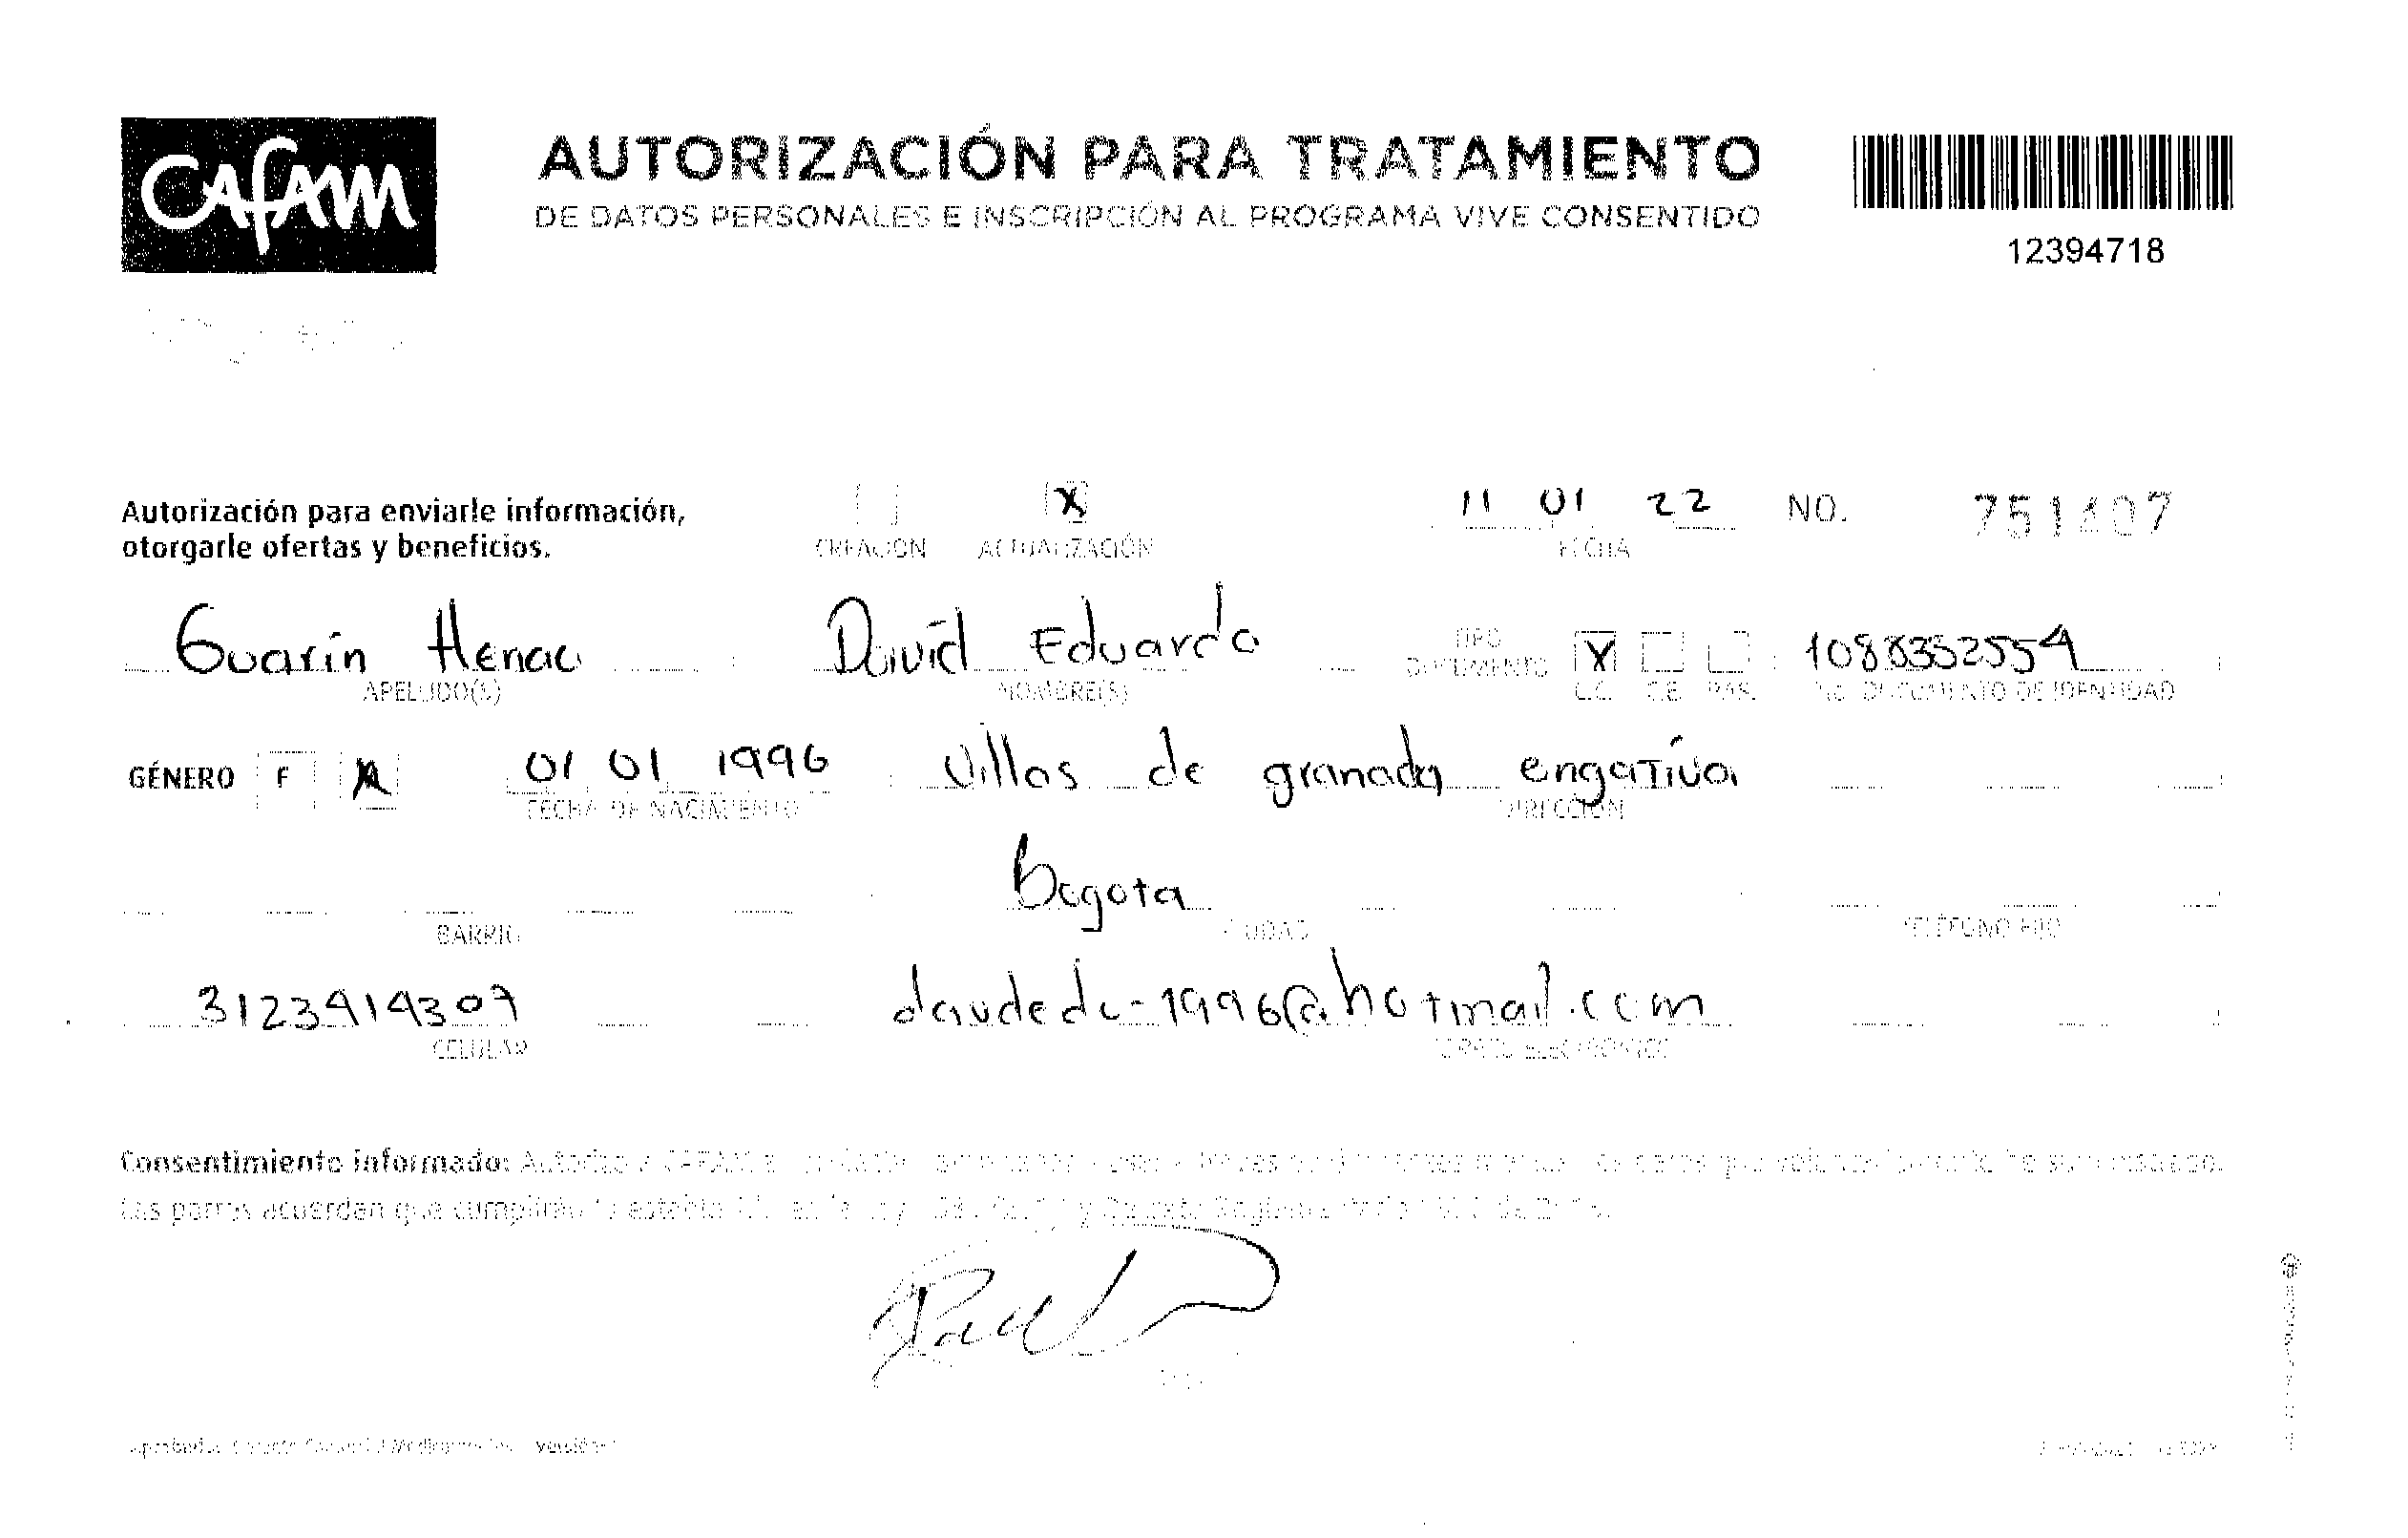 CAFAM
AUTORIZACIÓN PARA TRATAMIENTO
DE DATOS PERSONALES E INSCRIPCIÓN AL PROGRAMA VIVE CONSENTIDO
12394718
Autorización para enviarle información,
otorgarle ofertas y beneficios.
X
CREACIÓN ACTUALIZACIÓN
11 01 22
FECHA
NO. 751407
Guarín Henao David Eduardo
TIPO DOCUMENTO X 1088352554
APELLIDO(S) NOMBRE(S) C.C. C.E. PAS. No. DOCUMENTO DE IDENTIDAD
GÉNERO F M 01 01 1996 Villas de granada engativa
FECHA DE NACIMIENTO DIRECCIÓN
Bogota
BARRIO CIUDAD TELÉFONO FIJO
3123414309 davdedu-1996@hotmail.com
CELULAR CORREO ELECTRÓNICO
Consentimiento informado: Autorizo a CAFAM a
Las partes acuerdan que cumplirán